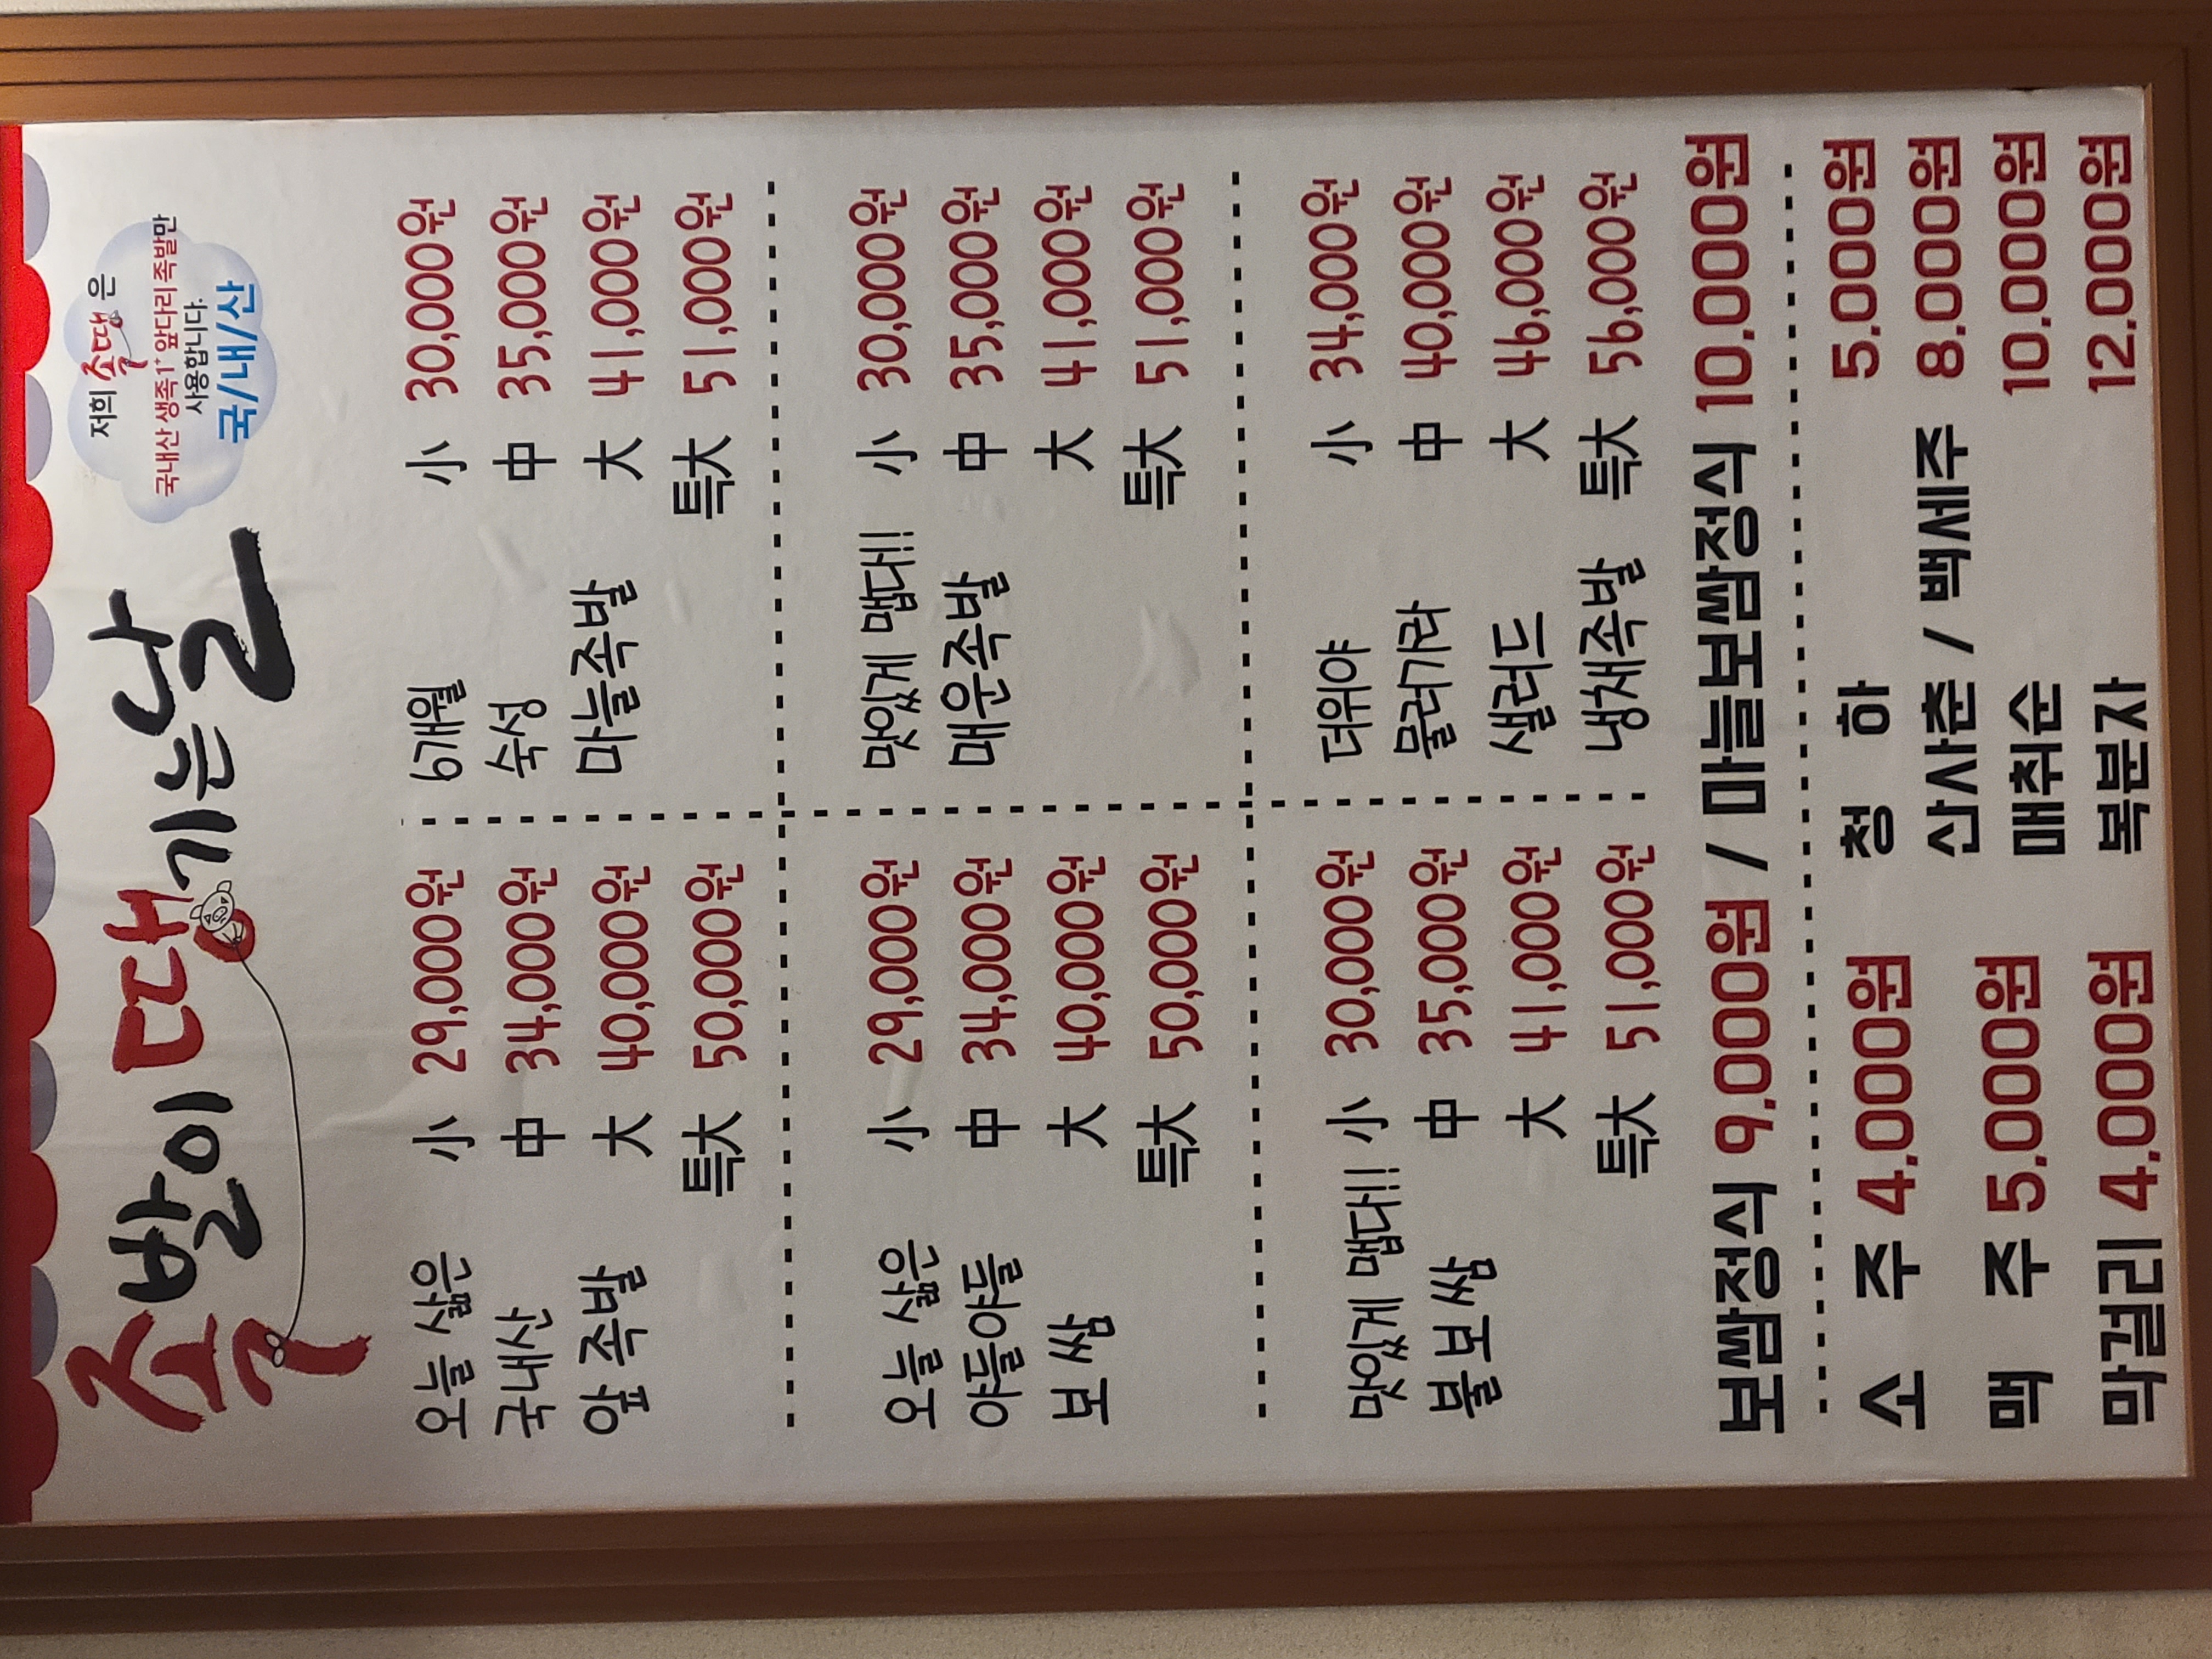 족발이 땡기는 날
저희 족땡은
국내산 생족 1+ 앞다리족발만
사용합니다.
국/내/산
오늘 삶은 小 29,000원
국내산 中 34,000원
앞 족발 大 40,000원
특大 50,000원
6개월 小 30,000원
숙성 中 35,000원
마늘족발 大 41,000원
특大 51,000원
오늘 삶은 小 29,000원
야들야들 中 34,000원
보쌈 大 40,000원
특大 50,000원
맛있게 맵다!! 小 30,000원
매운족발 中 35,000원
大 41,000원
특大 51,000원
맛있게 맵다!! 小 30,000원
불보쌈 中 35,000원
大 41,000원
특大 51,000원
더위야 小 34,000원
물러가라 中 40,000원
샐러드 大 46,000원
냉채족발 특大 56,000원
보쌈정식 9,000원 / 마늘보쌈정식 10,000원
소 주 4,000원
맥 주 5,000원
막걸리 4,000원
청 하 5,000원
산사춘 / 백세주 8,000원
매취순 10,000원
복분자 12,000원